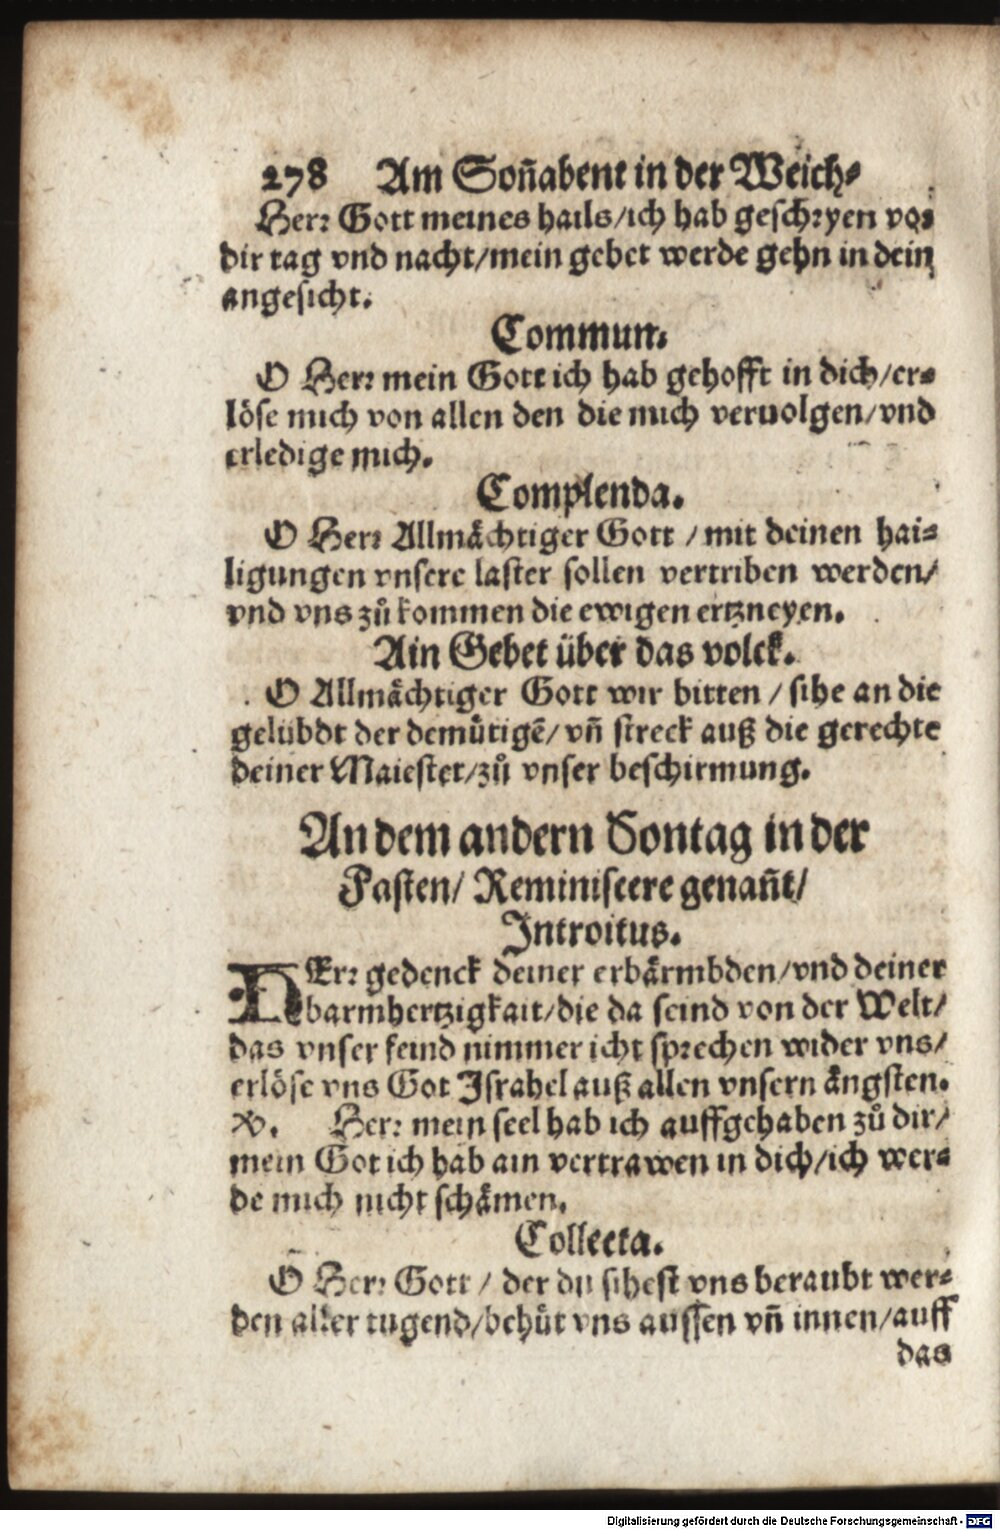 278 Am Soñabent in der Weich⸗
Herr Gott meines hails/ich hab geschryen vor
dir tag vnd nacht/mein gebet werde gehn in dein
angesicht.
Commun.
O Herr mein Gott ich hab gehofft in dich/er⸗
löse mich von allen den die mich veruolgen/vnd
erledige mich.
Complenda.
O Herr Allmåchtiger Gott / mit deinen hai⸗
ligungen vnsere laster sollen vertriben werden/
vnd vns zů kommen die ewigen ertzneyen.
Ain Gebet über das volck.
O Allmåchtiger Gott wir bitten / sihe an die
gelübdt der demůtigē/ vñ streck auß die gerechte
deiner Maiestet/zů vnser beschirmung.
An dem andern Sontag in der
Fasten/ Reminiscere genañt/
Introitus.
HErr gedenck deiner erbårmbden/vnd deiner
barmhertzigkait/die da seind von der Welt/
das vnser feind nimmer icht sprechen wider vns/
erlöse vns Got Israhel auß allen vnsern ångsten.
V. Herr mein seel hab ich auffgehaben zů dir/
mein Got ich hab ain vertrawen in dich/ich wer⸗
de mich nicht schåmen.
Collecta.
O Herr Gott / der du sihest vns beraubt wer⸗
den aller tugend/behüt vns aussen vñ innen/auff
das
Digitalisierung gefördert durch die Deutsche Forschungsgemeinschaft - DFG